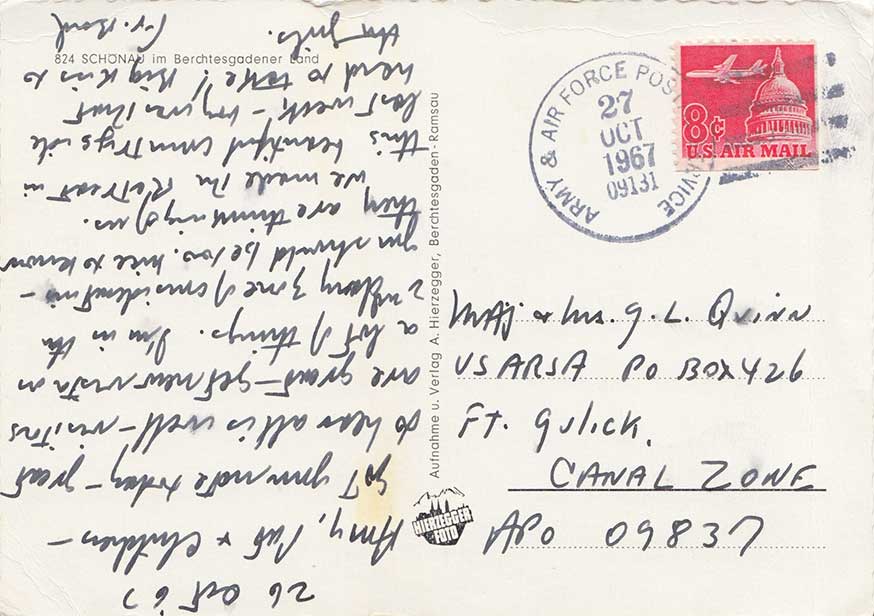 824 SCHÖNAU im Berchtesgadener Land
Aufnahme u. Verlag A. Hierzegger, Berchtesgaden-Ramsau
HIERZEGGER
FOTO
26 Oct 67
Pat & Children –
Got your note today – great
to hear all is well – visitors
are great – get new vista on
a lot of things. I'm in the
zone of consideration –
you should be too. nice to know
they are thinking of us.
We made the Retreat in
this beautiful countryside
last week –
hard to take! Big Kiss to
the girls.
Fr.
ARMY & AIR FORCE POSTAL SERVICE
27
OCT
1967
09131
8¢
U.S. AIR MAIL
Maj & Mrs. G. L. Quinn
USARSA PO BOX 426
FT. Gulick,
CANAL ZONE
APO 09837